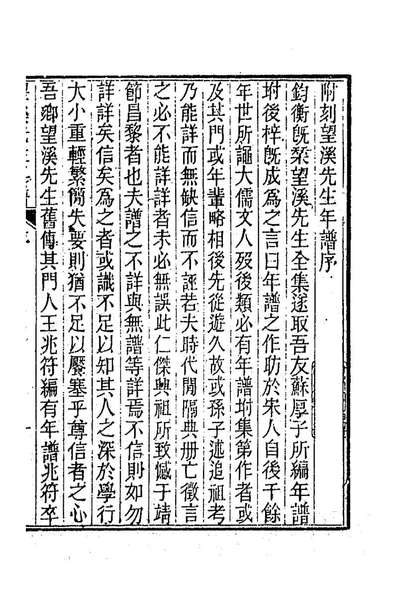 附刻望溪先生年譜序
鈞衡旣栞望溪先生全集遂取吾友蘇厚子所編年譜
坿後梓旣成爲之言曰年譜之作昉於宋人自後千餘
年世所謳大儒文人歿後類必有年譜坿集第作者或
及其門或年輩略相後先從遊久故或孫子述追祖考
乃能詳而無缺信而不誣若夫時代閒隔典册亡徵言
之必不能詳詳者未必無誤此仁傑興祖所致憾于靖
節昌黎者也夫譜之不詳與無譜等詳焉不信則如勿
詳詳矣信矣爲之者或識不足以知其人之深於學行
大小重輕繁簡失要則猶不足以厭塞乎尊信者之心
吾鄉望溪先生舊傳其門人王兆符編有年譜兆符卒